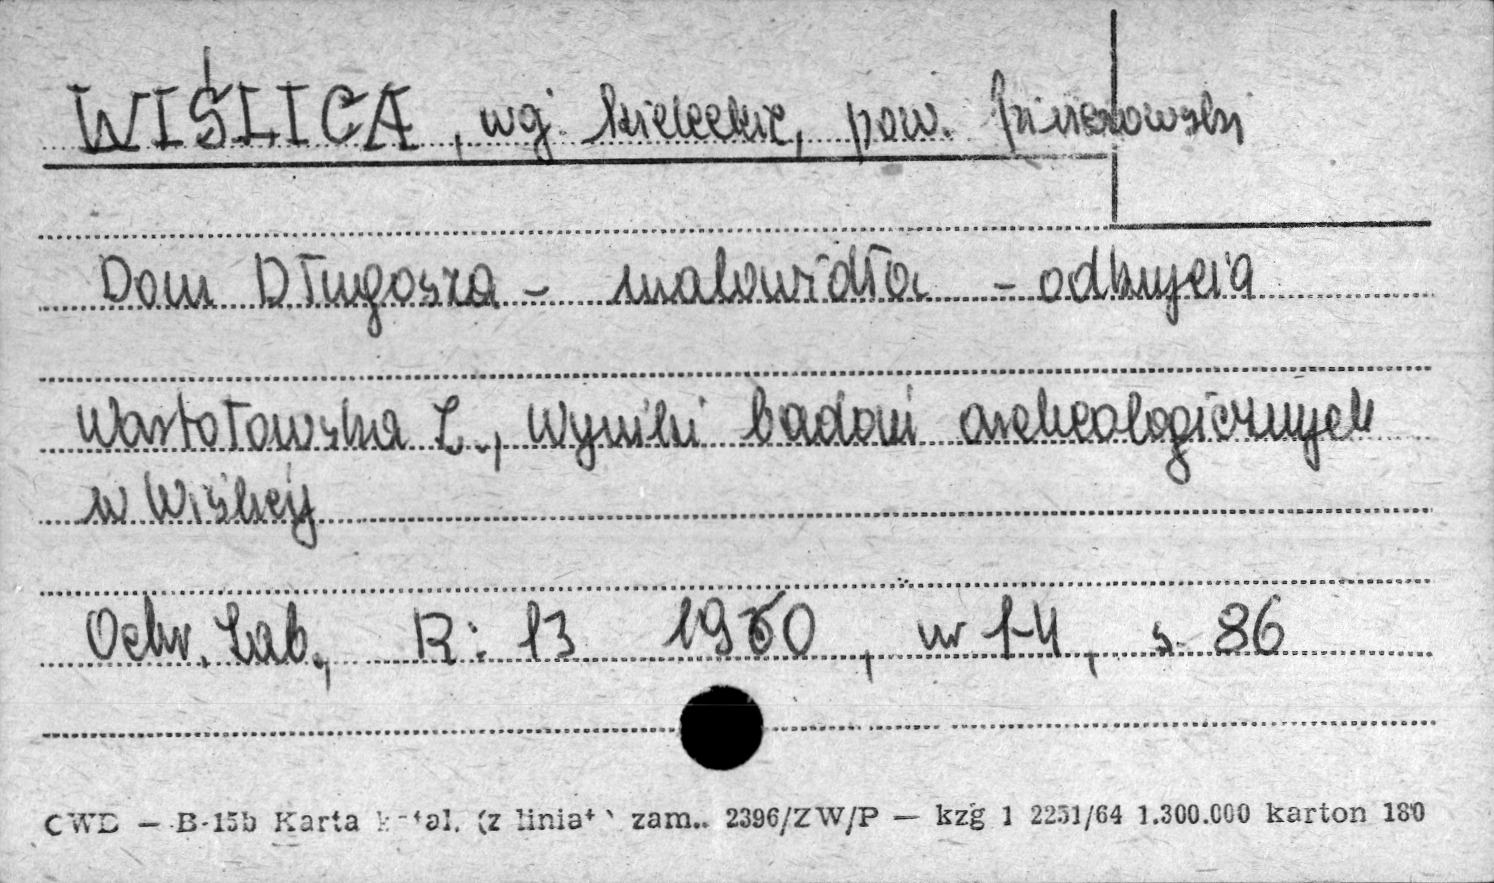 WIŚLICA, woj. kieleckie, pow. pińczowski
Dom Długosza - malowidła - odkrycia
Wartołowska Z., Wyniki badań archeologicznych
w Wiślicy
Ochr. Zab., R: 13 1960, nr 1-4, s. 86
CWD — B-15b Karta katal. (z linia zam.. 2396/ZW/P — kzg 1 2251/64 1.300.000 karton 180